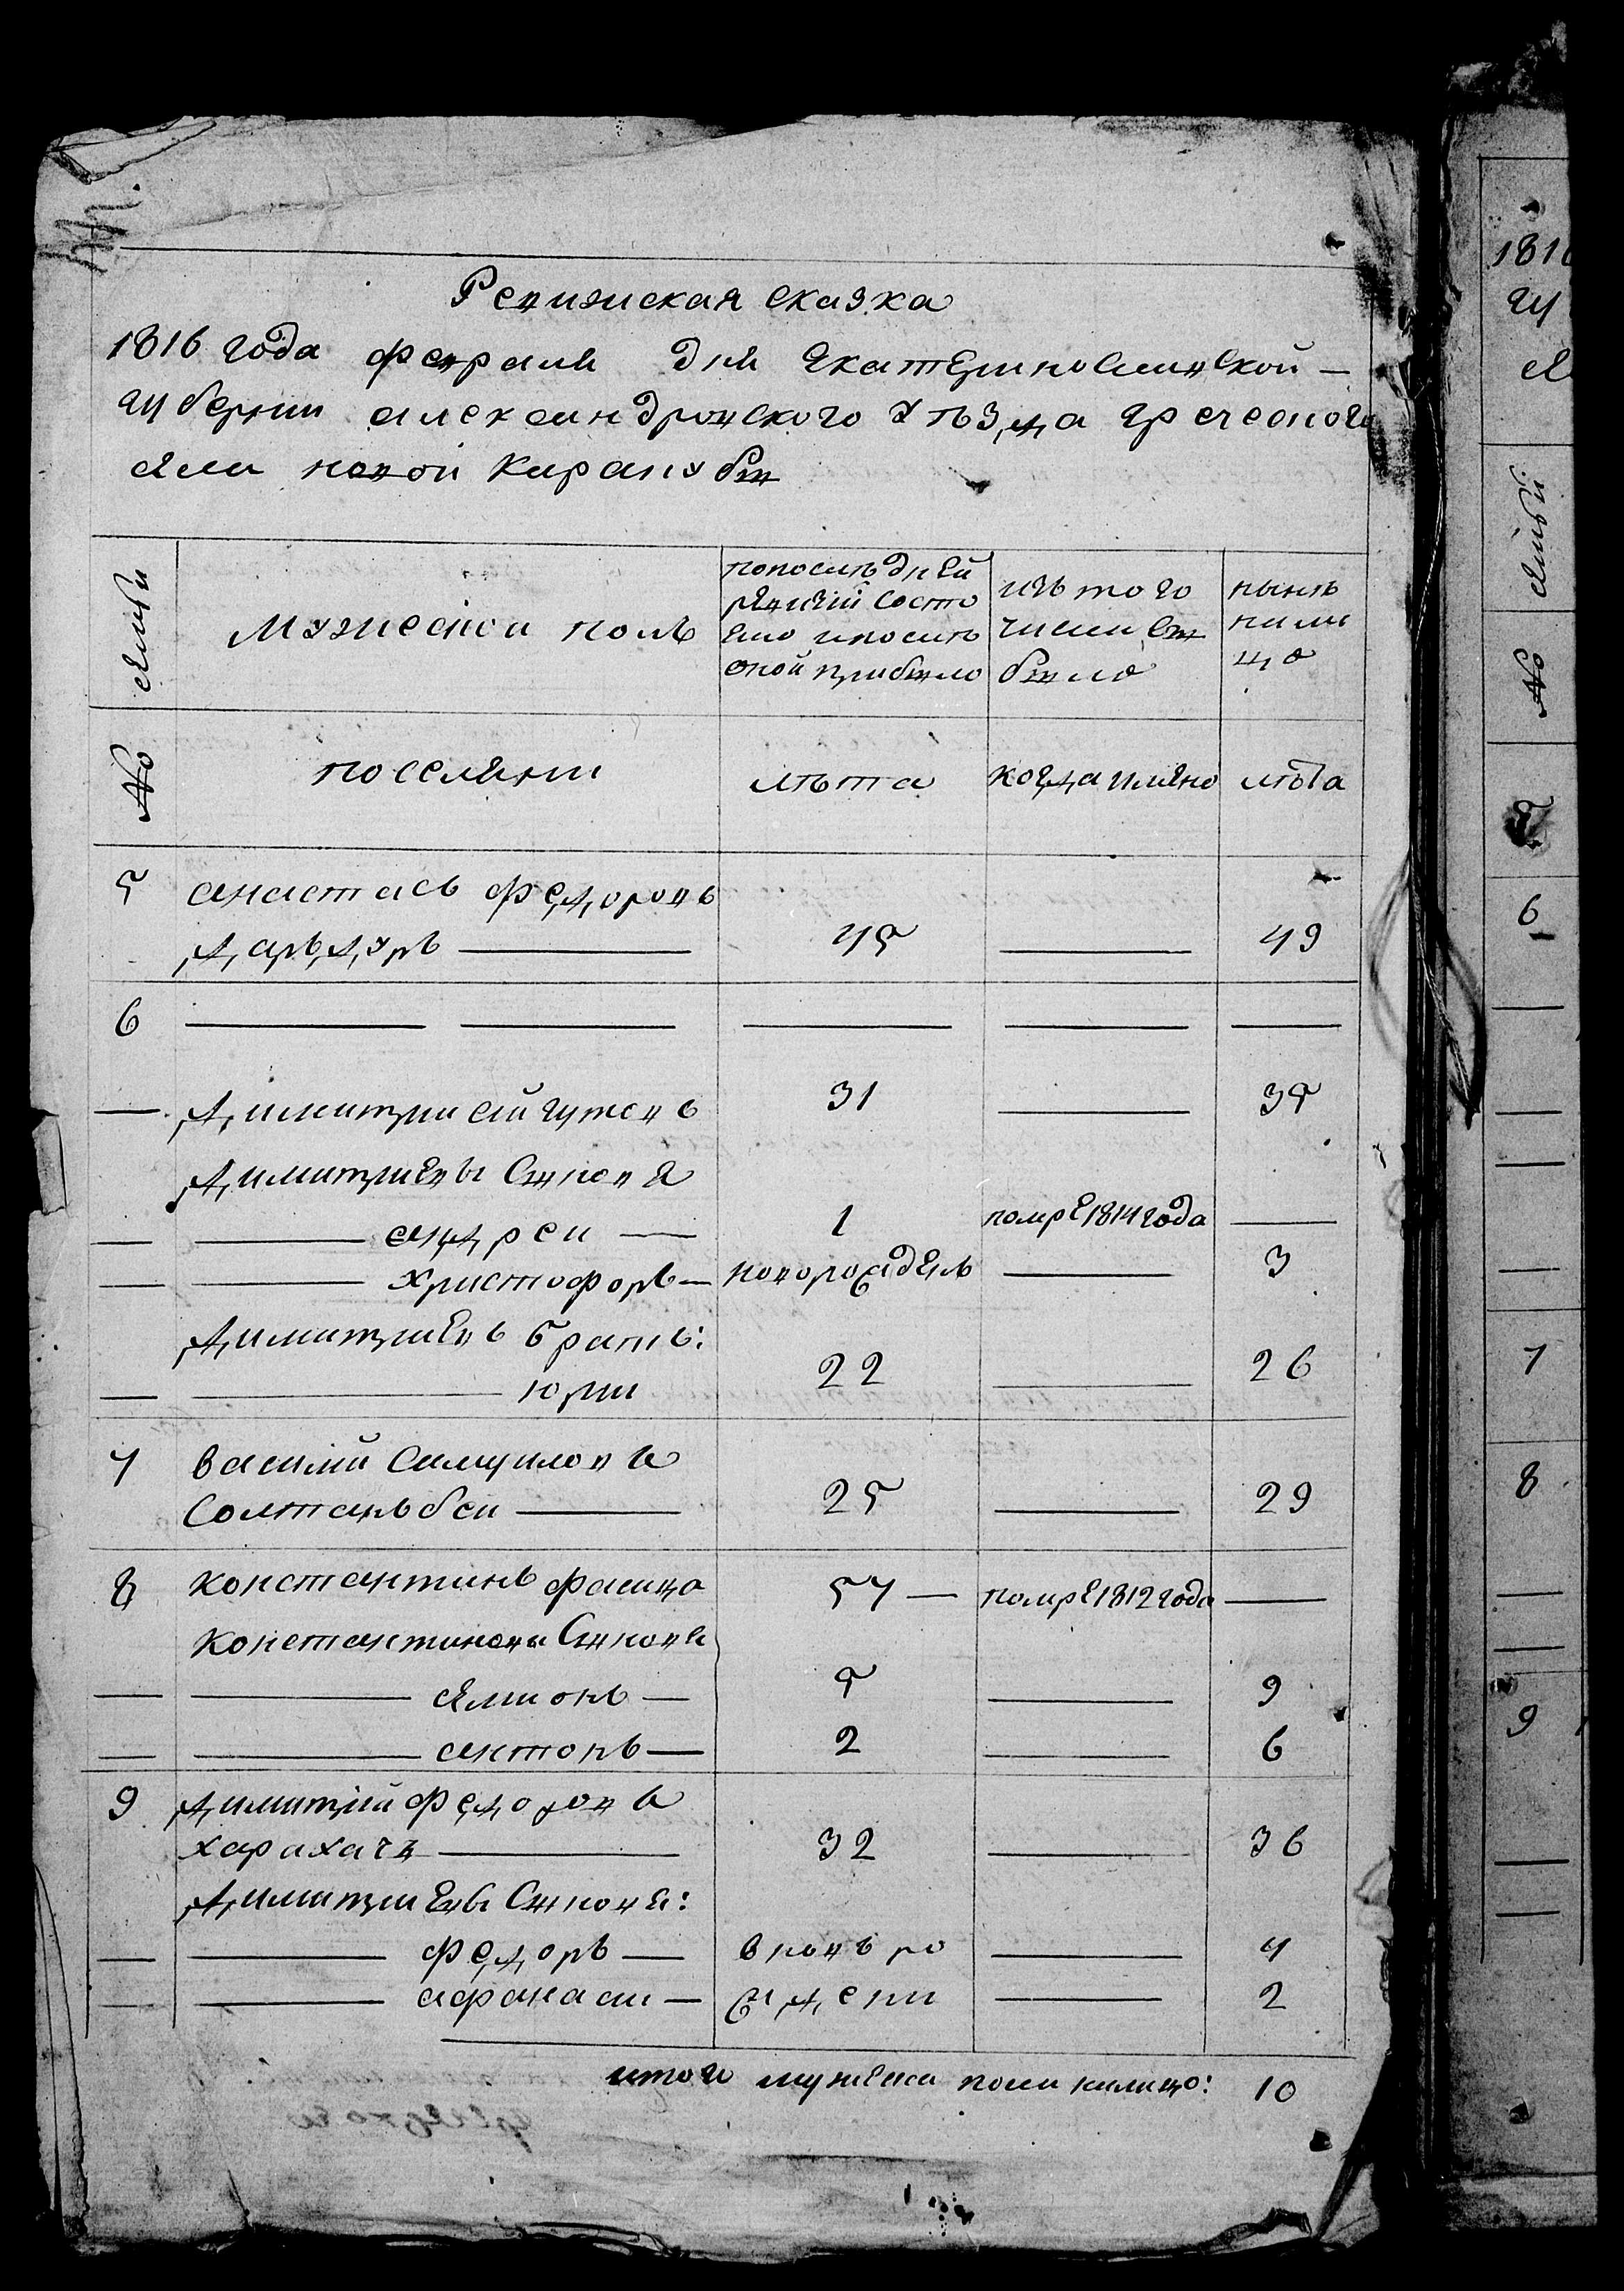 Ревизиская сказка
1816 года февраля дня Екатеринославской —
губернии александровского уѣзда греческого
села новой Каракубы
№ семьи
мужескои полъ
попослѣдней
ревизїй состо
яло ипослѣ
оной прибыло
изъ того
числа вы
было
нынѣ
на ли
цо
поселяни
лѣта
когда имяно
лѣта
5 анастасъ федоровъ
дарьдуръ — 45 — 49
6 — — — — —
— димитри 31 — 35
димитриевы Сынове
— — андреи — 1 помре 1814 года —
— — христофоръ — новорожденъ — 3
димитриевъ братъ:
— — юрии 22 — 26
7 василий Самуилове
Солтанъбеи — 25 — 29
8 Константинъ фасица 57 — помре 1812 года —
Константиновы Сынове
— — семионъ — 5 — 9
— — антонъ — 2 — 6
9 димитрїй федоровъ
харахачъ — 32 — 36
димитриевы Сынове:
— — федоръ — вновь ро — 4
— — афанаси — ждени — 2
итого мужеска пола налицо: 10
1816
гу
се
№ семьи
6
7
8
9